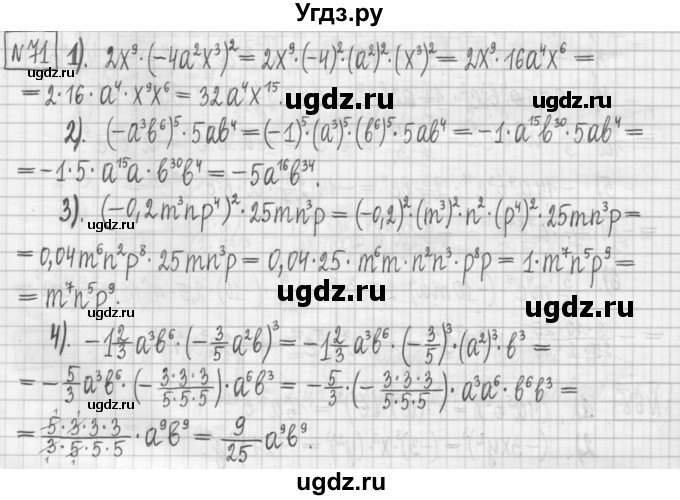 Угдз.ру
N 71 1). 2x⁹·(-4a²x³)² = 2x⁹·(-4)²·(a²)²·(x³)² = 2x⁹·16a⁴x⁶ =
= 2·16·a⁴·x⁹x⁶ = 32a⁴x¹⁵.
ugdz.ru
ugdz.ru
2). (-a³b⁶)⁵·5ab⁴ = (-1)⁵·(a³)⁵·(b⁶)⁵·5ab⁴ = -1·a¹⁵b³⁰·5ab⁴ =
= -1·5·a¹⁵a·b³⁰b⁴ = -5a¹⁶b³⁴.
ugdz.ru
3). (-0,2m³np⁴)²·25mn³p = (-0,2)²·(m³)²·n²·(p⁴)²·25mn³p =
ugdz.ru
= 0,04m⁶n²p⁸·25mn³p = 0,04·25·m⁶m·n²n³·p⁸p = 1·m⁷n⁵p⁹ =
= m⁷n⁵p⁹.
ugdz.ru
ugdz.ru
4). -1 2/3 a³b⁶·(-3/5 a²b)³ = -1 2/3 a³b⁶·(-3/5)³·(a²)³·b³ =
= -5/3 a³b⁶·(-3·3·3/5·5·5)·a⁶b³ = -5/3·(-3·3·3/5·5·5)·a³a⁶·b⁶b³ =
= 5·3·3·3/3·5·5·5·a⁹b⁹ = 9/25 a⁹b⁹.
ugdz.ru
ugdz.ru